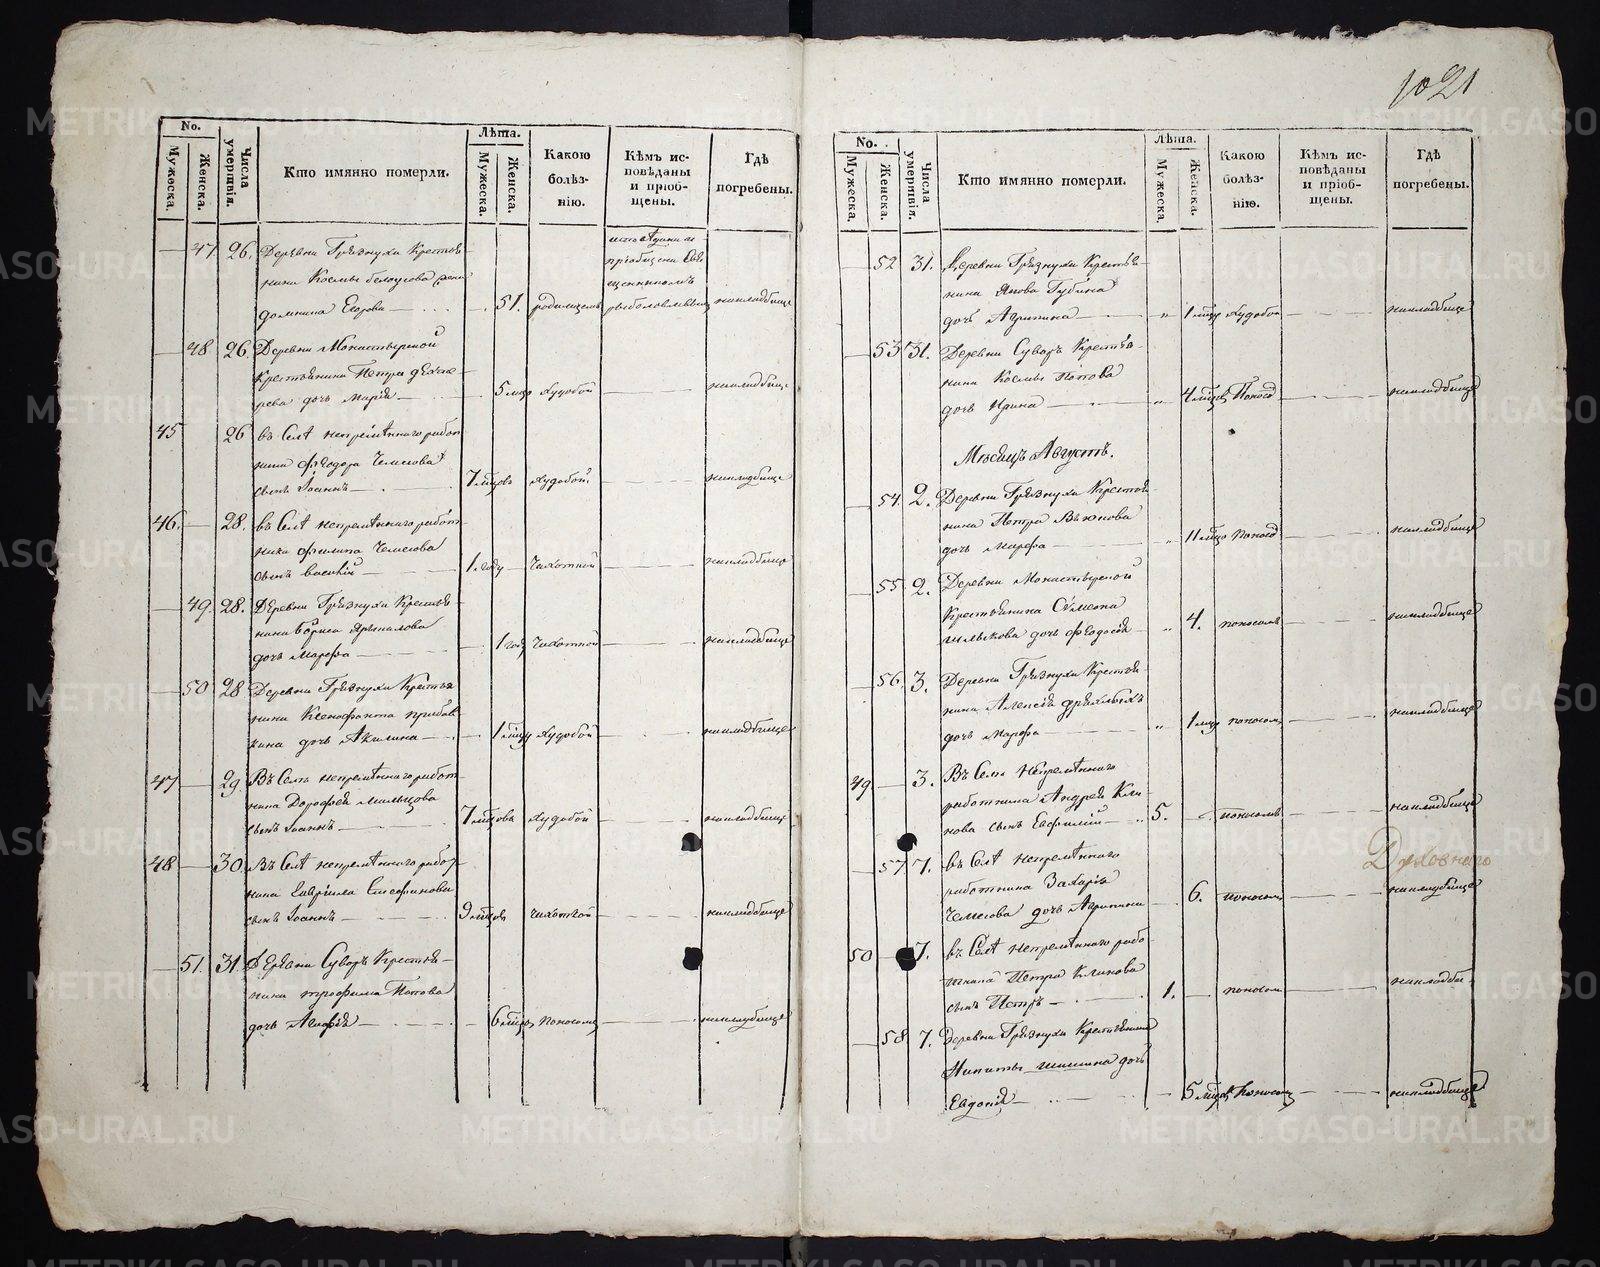 1021
No.
Мужеска.
Женска.
Числа умертвія.
Кто имянно померли.
Лѣта.
Мужеска.
Женска.
Какою
болѣз-
нію.
Кѣмъ ис-
повѣданы
и пріоб-
щены.
Гдѣ
погребены.
47 26. Деревни Грязнухи Крестья-
нина Космы Белоусова жена
Домнина Егорова 51. родимцемъ
48 26. Деревни Монастырской
Крестьянина Петра
дочь Марія 5 худобой на кладбище
45 26 въ Селѣ непремѣннаго работ-
ника Ѳеодора Чемесова
сынъ Іоаннъ 7 мцовъ худобой на кладбище
46. 28. въ Селѣ непремѣннаго работ-
ника Филипа Чемесова
сынъ Василій 1. году чихоткой на кладбище
49. 28. Деревни Грязнухи Крестья-
нина Бориса
дочь Марфа 1 году чихоткой на кладбище
50 28 Деревни Грязнухи Крестья-
нина Ксенофонта
дочь Акилина 1 мцу худобой на кладбище
47 29 Въ Селѣ непремѣннаго работ-
ника Дорофея Мальцова
сынъ Іоаннъ 7 мцовъ худобой на кладбище
48 30. Въ Селѣ непремѣннаго работ-
ника Гавріила
сынъ Іоаннъ 9 мцовъ чихоткой на кладбище
51. 31. Деревни Суворъ Крестья-
нина Трофима Попова
дочь Агафія 6 мцовъ поносомъ на кладбище
No.
Мужеска.
Женска.
Числа умертвія.
Кто имянно померли.
Лѣта.
Мужеска.
Женска.
Какою
болѣз-
нію.
Кѣмъ ис-
повѣданы
и пріоб-
щены.
Гдѣ
погребены.
52 31. Деревни Грязнухи Крестья-
нина Якова Губина
дочь Агрипина 1 мцу худобой на кладбище
53 31. Деревни Суворъ Крестья-
нина Космы Попова
дочь Ирина 4 мцовъ Понос на кладбище
Мѣсяцъ Августъ.
54. 2. Деревни Грязнухи Крестья-
нина Петра
дочь Марфа 11 мцо понос на кладбище
55 2. Деревни Монастырской
Крестьянина Сѵмеона
дочь Ѳеодосія 4. поносомъ на кладбище
56. 3. Деревни Грязнухи Крестья-
нина Алексія Дряхлыхъ
дочь Марфа 1 мцу поносом на кладбище
49 3. Въ Селѣ Непремѣннаго
работника Андрея Кли-
нова сынъ 5. поносомъ на кладбище
Духовнаго
57 7. въ Селѣ непремѣннаго
работника Захарія
Чемесова дочь Агрипина 6. поносом на кладбище
50 7. въ Селѣ непремѣннаго рабо-
тника Петра Клинова
сынъ Петръ 1. поносом на кладби
58. 7. Деревни Грязнухи Крестьянина
Никиты Шишина дочь
Евдокія 5 мцовъ поносомъ на кладбище
METRIKI.GASO-URAL.RU